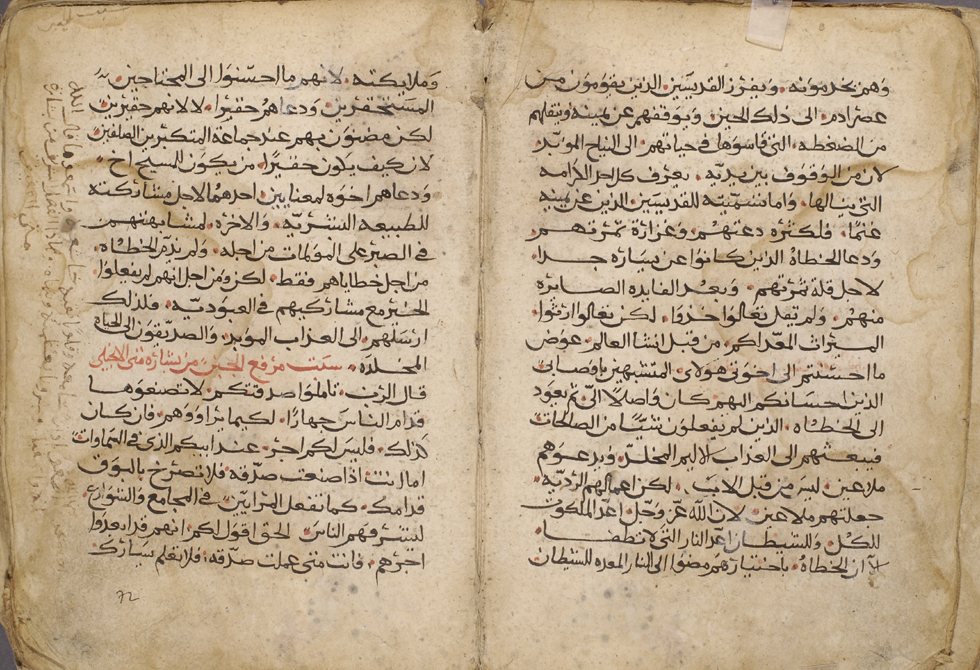 وهم يخدمونه. ويفرز القديسين الذين يقومون من
عصر ادم. الى ذلك الحين. ويوقفهم عن يمينه وينقلهم
من الضغطه. التي قاسوها في حياتهم. الى النياح الموبد
لان من الوقوف بين يديه. يعرف كل احد الكرامه
التي ينالها. واما تسميته للقديسين الذين عن يمينه
غنما. فلكثره دعتهم. وغزارة ثمرتهم.
ودعا الخطاه الذين كانوا عن يساره جدا.
لاجل قلة ثمرتهم. وبعد الفايده الصايره
منهم. ولم يقل تعالوا خذوا. لكن تعالوا ارثوا.
الميراث المعد لكم. من قبل انشا العالم. عوض
ما احسنتم الى اخوتي هولاي المتشبهين باوصايي
الذين احسانكم اليهم كان واصلا الي ثم يعود
الى الخطاه. الذين لم يفعلون شيا من الصالحات
فيبعثهم الى العذاب الاليم المخلد. ويدعوهم
ملاعين. ليس من قبل الاب. لكن اعمالهم الرديه
جعلتهم ملاعين. لان الله عز وجل اعد الملكوت
للكل. وللشيطان اعد النار التي لا تطفا.
الا ان الخطاه. باختيارهم مضوا الى النار المعده للشيطان
وملايكته. لانهم ما احسنوا الى المحتاجين.
المستحقرين. ودعاهم حقيرا. لا لانهم حقيرين
لكن مضنون بهم عند جماعة المتكبرين الصلفين
لان كيف يكون حقيرا. من يكون للمسيح اخ
ودعاهم اخوه لمعنايين. احدهما لاجل مشاركته
للطبيعه البشريه. والاخره لمشابهتهم
في الصبر على المولمات من اجله. ولم يذم الخطاه.
من اجل خطاياهم فقط. لكن ومن اجل انهم لم يفعلوا.
الخير مع مشاركيهم في العبوديه. فلذلك
ارسلهم. الى العذاب الموبد. والصديقون الى الحياه
المخلده. سبت مرفع الجبن من بشارة متى الانجيلي
قال الرب. تاملوا صدقتكم. لا تصنعوها
قدام الناس جهارا. لكيما يراووهم. فان كان
كذلك. فليس لكم اجر. عند ابيكم الذي في السماوات
اما انت اذا صنعت صدقه. فلا تصرخ بالبوق
قدامك. كما تفعل المرايين. في المجامع والشوارع.
ليشرفهم الناس. الحق اقول لكم. انهم قد ابعدوا
اجرهم. فانت متى عملت صدقه. فلا تعلم يسارك
72